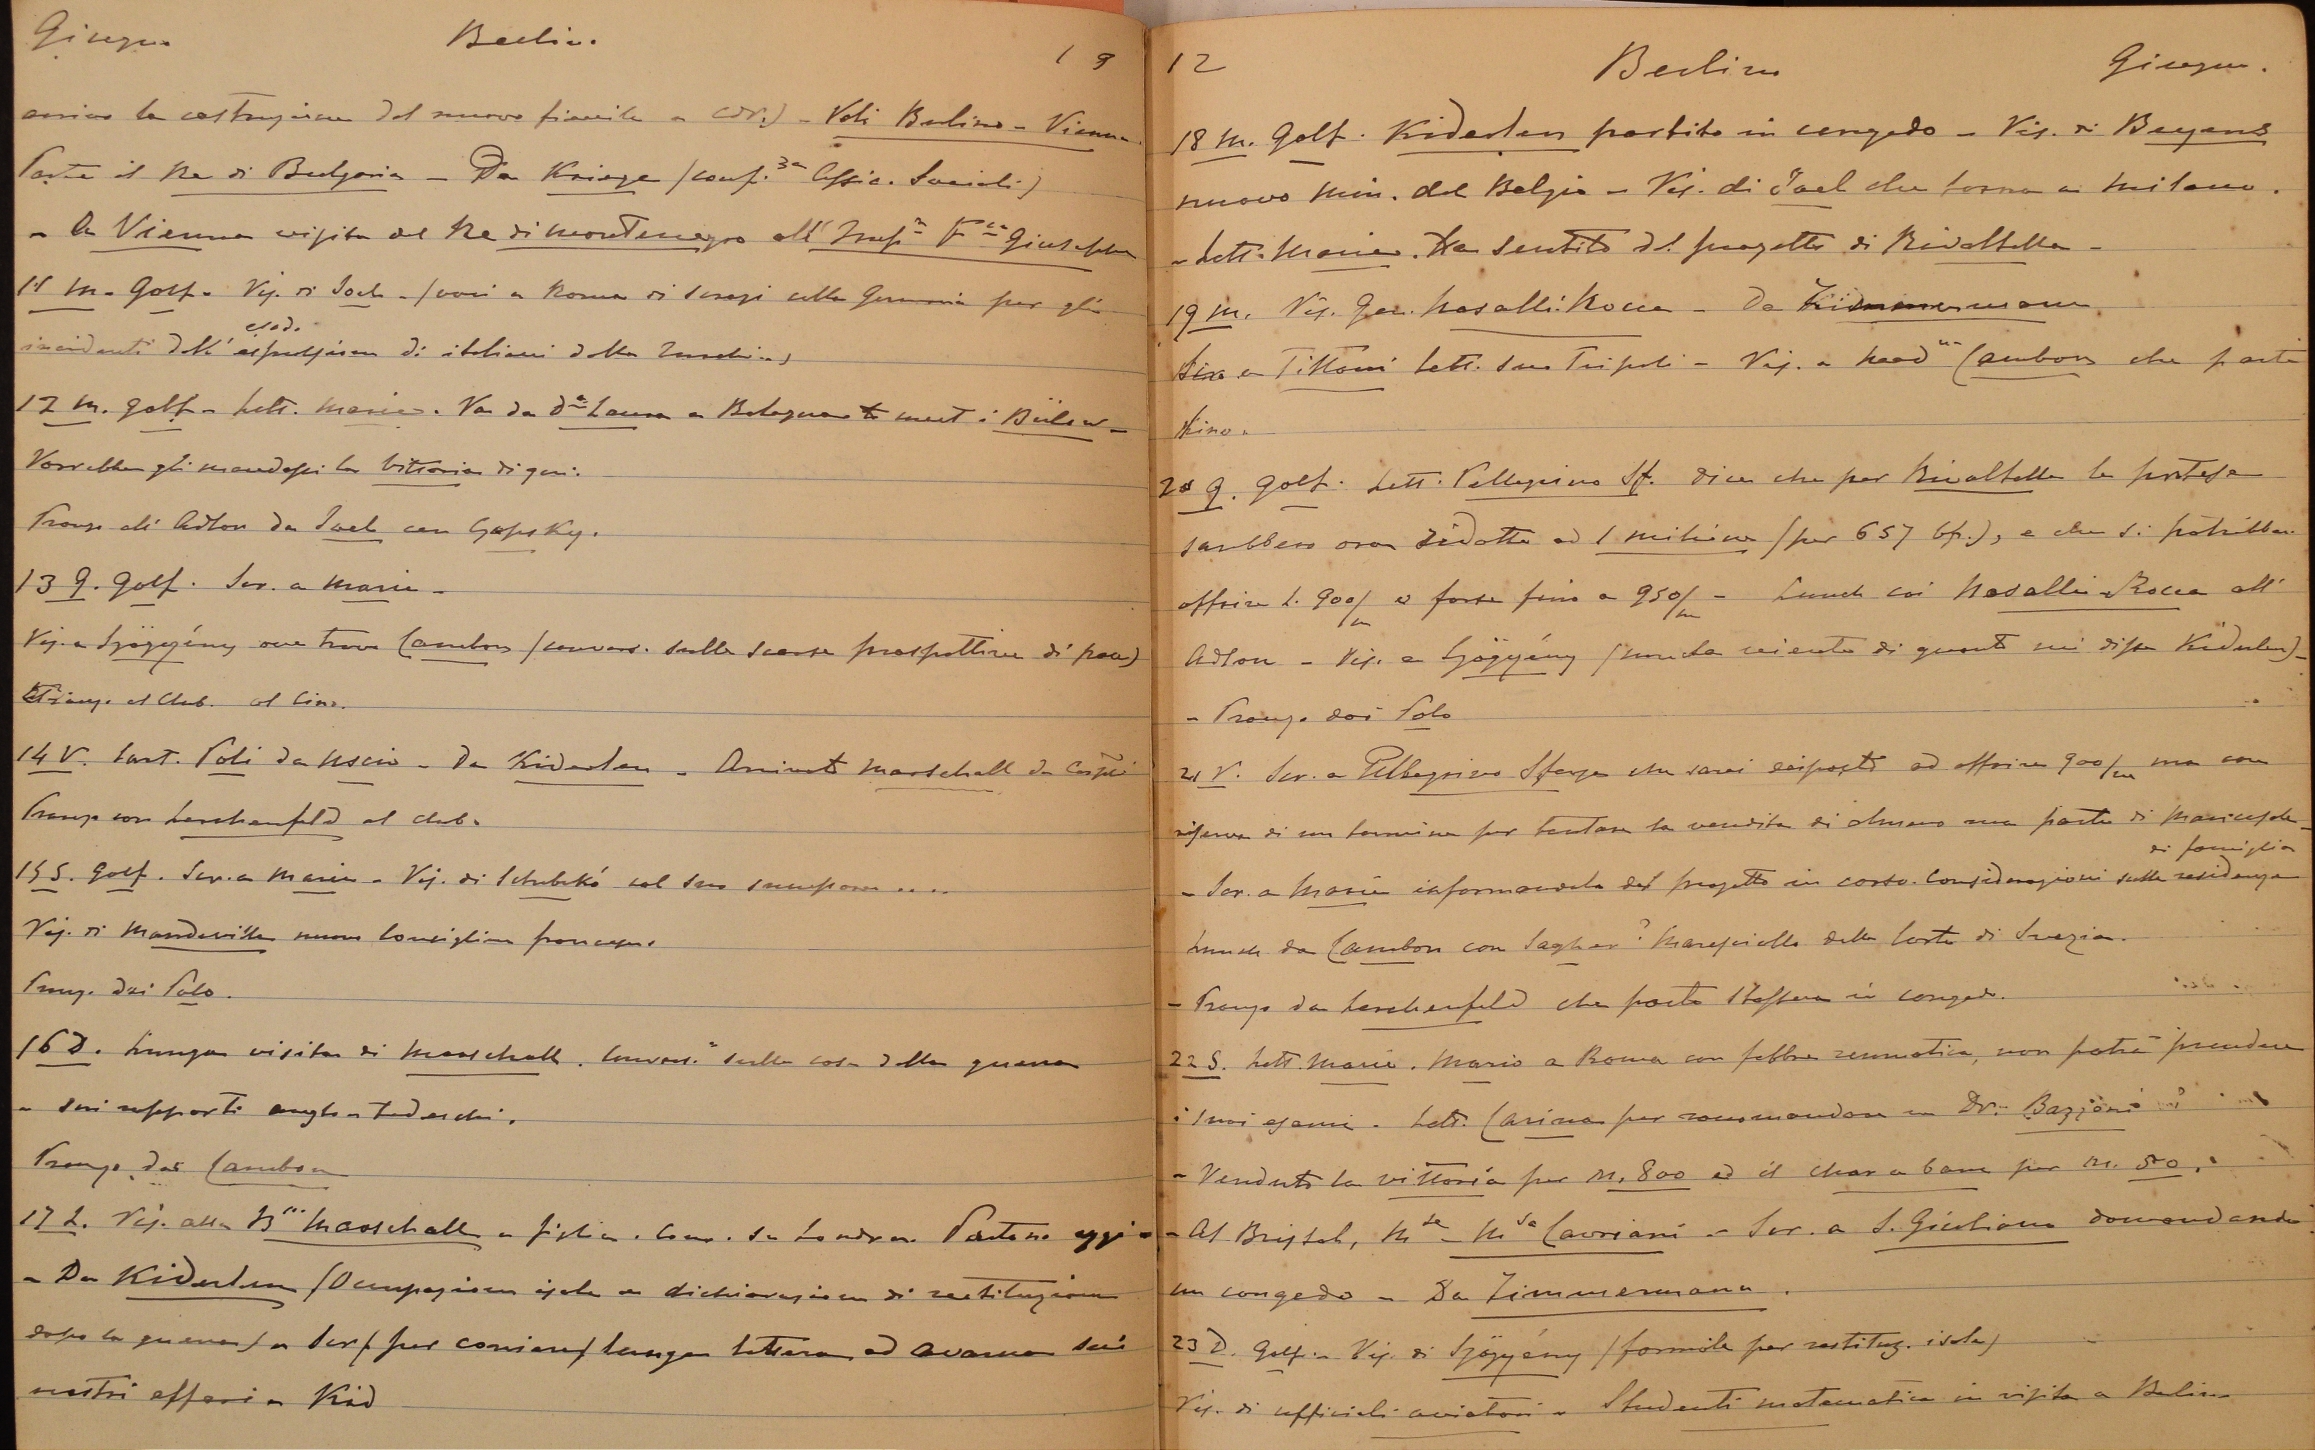 Giugno Berlino. 19
la costruzione del nuovo fienile a - Voli Berlino - Vienna.
Parte il Re di Bulgaria - Da Kriege (conf. 3a Assic. Sociali)
- A Vienna visita del Re di Montenegro all' Imp.e F.co Giuseppe
11 M. Golf. Vis. di Joel - (voci a Roma di screzi colla Germania per gli
incidenti dell' esod. espulsione di italiani dalla Turchia)
12 M. Golf - Lett. Maria. Va da Da Laura a Bologna to meet i Bülow -
Vorrebbe gli mandassi la vittoria di qui.
Pranzo all' Adlon da Joel con
13 G. Golf. Scr. a Maria -
Vis. a Szögyény ove trovo Cambon (convers. sulle scarse prospettive di pace)
Pranzo al Club. al Cino.
14 V. Lett. Poli da Uscio - Da Kiderlen - Arrivato Marschall da
Pranzo con Lerchenfeld al club.
15 S. Golf. Scr. a Maria - Vis. di Schebekó col suo ....
Vis. di Mandeville nuovo Consigliere francese.
Pranzo dai Polo.
16 D. Lunga visita di Marschall. Convers.e sulle cose della guerra
- sui rapporti anglo-tedeschi.
Pranzo dai Cambon
17 L. Vis. alla B.ssa Marschall e figlia. Conv. su Londra. Partono oggi -
- Da Kiderlen (Occupazione isole e dichiarazione di restituzione
dopo la guerra) - Scr (per corriere) lunga lettera ad Avarna sui
nostri affari - Kid
12 Berlino Giugno.
18 M. Golf. Kiderlen partito in congedo - Vis. di Beyens
nuovo Min. del Belgio - Vis. di Joel che torna a Milano.
- Lett. Maria. Ha sentito del progetto di Rivaltella -
19 M. Vis. Gen. Nasalli-Rocca - Da Zimmermann
Scr. a Tittoni lett. su Tripoli - Vis. a Mad.me Cambon che parte
Kino.
20 G. Golf. Lett. Pellegrino Sf. dice che per Rivaltella le pretese
sarebbero ora ridotte ad 1 milione (per 657 bf.), e che si potrebbe
offrire L. 900/m e forse fino a 950/m - Lunch coi Nasalli-Rocca all'
Adlon - Vis. a Szögyény (niente di quanto mi disse Kiderlen) -
- Pranzo dai Polo
21 V. Scr. a Pellegrino Sforza che sarei disposto ad offrire 900/m ma con
riserva di un termine per tentare la vendita di almeno una parte di
- Scr. a Maria informandola del progetto in corso. Considerazioni sulla residenza di famiglia
Lunch da Cambon con Sagher? Maresciallo della Corte di Svezia.
- Pranzo da Lerchenfeld che parte stassera in congedo.
22 S. Lett. Maria. Mario a Roma con febbre reumatica, non potrà prendere
i suoi esami - Lett. Carina per raccomandare un Dr. Bazzoni?
- Venduto la vittoria per M. 800 ed il char a banc per M. 500.
- Al Bristol, Mse - Msa Cavriani - Scr. a S. Giuliano domandando
un congedo - Da Zimmermann.
23 D. Golf. - Vis. di Szögyény (formole per restituz. isole)
Vis. di ufficiali aviatori - Studenti matematica in visita a Berlino